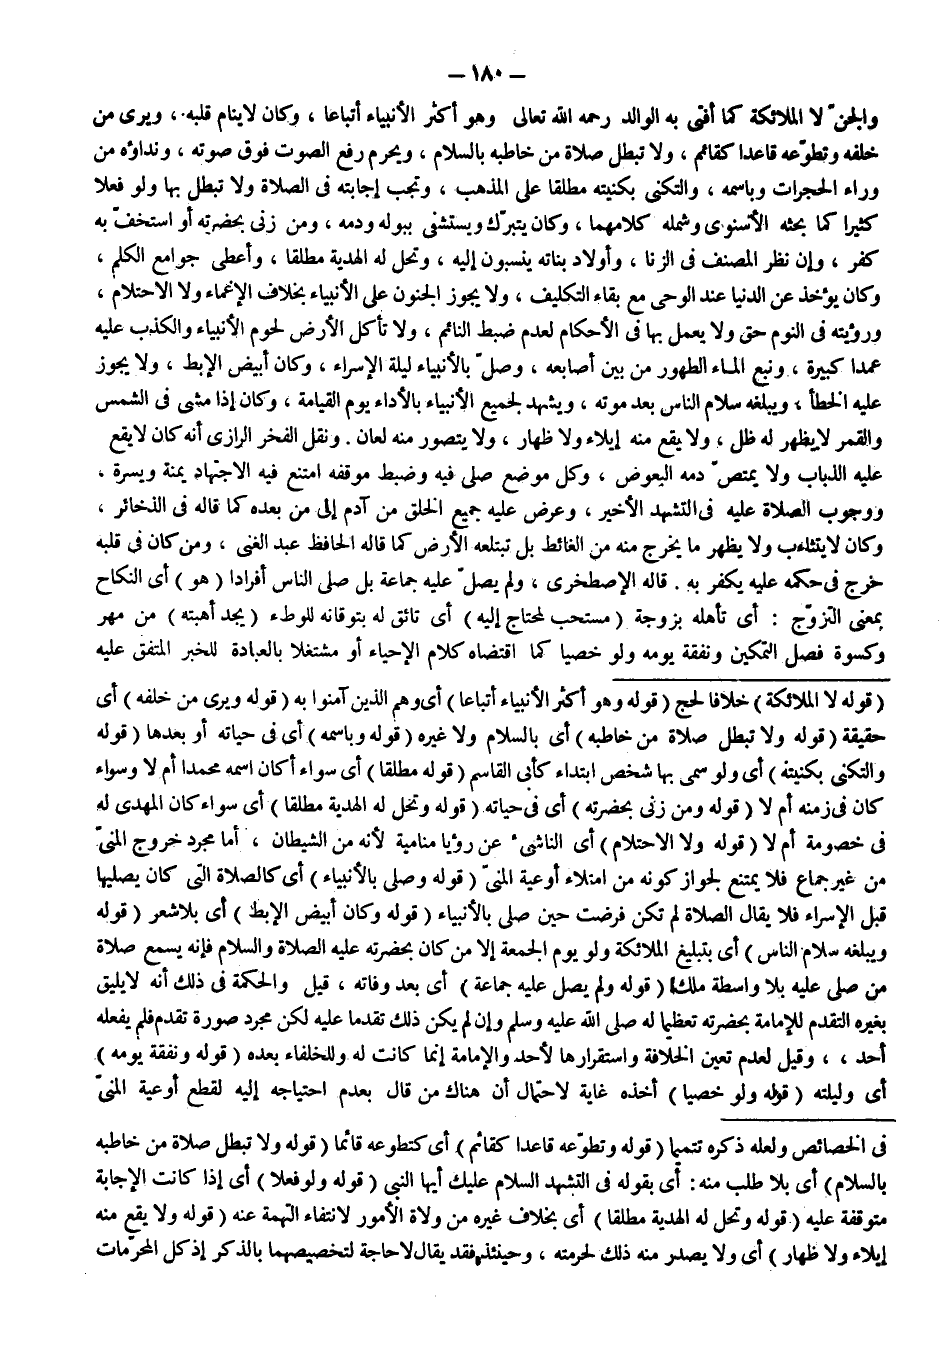 — ١٨٠ —
والجنّ لا الملائكة كما أفتى به الوالد رحمه الله تعالى وهو أكثر الأنبياء أتباعا ، وكان لاينام قلبه ، ويرى من
خلفه وتطوّعه قاعدا كقائم ، ولا تبطل صلاة من خاطبه بالسلام ، ويحرم رفع الصوت فوق صوته ، ونداؤه من
وراء الحجرات وباسمه ، والتكنى بكنيته مطلقا على المذهب ، وتجب إجابته فى الصلاة ولا تبطل بها ولو فعلا
كثيرا كما بحثه الأسنوى وشمله كلامهما ، وكان يتبرّك ويستشفى ببوله ودمه ، ومن زنى بحضرته أو استخفّ به
كفر ، وإن نظر المصنف فى الزنا ، وأولاد بناته ينسبون إليه ، وتحل له الهدية مطلقا ، وأعطى جوامع الكلم ،
وكان يؤخذ عن الدنيا عند الوحى مع بقاء التكليف ، ولا يجوز الجنون على الأنبياء بخلاف الإغماء ولا الاحتلام ،
ورؤيته فى النوم حق ولا يعمل بها فى الأحكام لعدم ضبط النائم ، ولا تأكل الأرض لحوم الأنبياء والكذب عليه
عمدا كبيرة ، ونبع الماء الطهور من بين أصابعه ، وصلّ بالأنبياء ليلة الإسراء ، وكان أبيض الإبط ، ولا يجوز
عليه الخطأ ، ويبلغه سلام الناس بعد موته ، ويشهد لجميع الأنبياء بالأداء يوم القيامة ، وكان إذا مشى فى الشمس
والقمر لايظهر له ظل ، ولا يقع منه إيلاء ولا ظهار ، ولا يتصور منه لعان . ونقل الفخر الرازى أنه كان لايقع
عليه الذباب ولا يمتصّ دمه البعوض ، وكل موضع صلى فيه وضبط موقفه امتنع فيه الاجتهاد يمنة ويسرة ،
ووجوب الصلاة عليه فى التشهد الأخير ، وعرض عليه جميع الخلق من آدم إلى من بعده كما قاله فى الذخائر ،
وكان لايتثاءب ولا يظهر ما يخرج منه من الغائط بل تبتلعه الأرض كما قاله الحافظ عبد الغنى ، ومن كان فى قلبه
خرج فى حكمه عليه يكفر به . قاله الإصطخرى ، ولم يصلّ عليه جماعة بل صلى الناس أفرادا ( هو ) أى النكاح
بمعنى التزوّج : أى تأهله بزوجة ( مستحب لمحتاج إليه ) أى تائق له بتوقانه للوطء ( يجد أهبته ) من مهر
وكسوة فصل التمكين ونفقة يومه ولو خصيا كما اقتضاه كلام الإحياء أو مشتغلا بالعبادة للخبر المتفق عليه
( قوله لا الملائكة ) خلافا لحج ( قوله وهو أكثر الأنبياء أتباعا ) أى وهم الذين آمنوا به ( قوله ويرى من خلفه ) أى
حقيقة ( قوله ولا تبطل صلاة من خاطبه ) أى بالسلام ولا غيره ( قوله وباسمه ) أى فى حياته أو بعدها ( قوله
والتكنى بكنيته ) أى ولو سمى بها شخص ابتداء كأبى القاسم ( قوله مطلقا ) أى سواء أكان اسمه محمدا أم لا وسواء
كان فى زمنه أم لا ( قوله ومن زنى بحضرته ) أى فى حياته ( قوله وتحل له الهدية مطلقا ) أى سواء كان المهدى له
فى خصومة أم لا ( قوله ولا الاحتلام ) أى الناشىء عن رؤيا منامية لأنه من الشيطان ، أما مجرد خروج المنىّ
من غير جماع فلا يمتنع لجواز كونه من امتلاء أوعية المنىّ ( قوله وصلى بالأنبياء ) أى كالصلاة التى كان يصليها
قبل الإسراء فلا يقال الصلاة لم تكن فرضت حين صلى بالأنبياء ( قوله وكان أبيض الإبط ) أى بلاشعر ( قوله
ويبلغه سلام الناس ) أى بتبليغ الملائكة ولو يوم الجمعة إلا من كان بحضرته عليه الصلاة والسلام فإنه يسمع صلاة
من صلى عليه بلا واسطة ملك ( قوله ولم يصل عليه جماعة ) أى بعد وفاته ، قيل والحكمة فى ذلك أنه لايليق
بغيره التقدم للإمامة بحضرته تعظيما له صلى الله عليه وسلم وإن لم يكن ذلك تقدما عليه لكن مجرد صورة تقدم فلم يفعله
أحد ، ، وقيل لعدم تعين الخلافة واستقرارها لأحد والإمامة إنما كانت له وللخلفاء بعده ( قوله ونفقة يومه )
أى وليلته ( قوله ولو خصيا ) أخذه غاية لاحتمال أن هناك من قال بعدم احتياجه إليه لقطع أوعية المنىّ
فى الخصائص ولعله ذكره تتميما ( قوله وتطوّعه قاعدا كقائم ) أى كتطوعه قائما ( قوله ولا تبطل صلاة من خاطبه
بالسلام ) أى بلا طلب منه : أى بقوله فى التشهد السلام عليك أيها النبى ( قوله ولوفعلا ) أى إذا كانت الإجابة
متوقفة عليه ( قوله وتحل له الهدية مطلقا ) أى بخلاف غيره من ولاة الأمور لانتفاء التهمة عنه ( قوله ولا يقع منه
إيلاء ولا ظهار ) أى ولا يصدر منه ذلك لحرمته ، وحينئذ فقد يقال لاحاجة لتخصيصهما بالذكر إذ كل المحرّمات